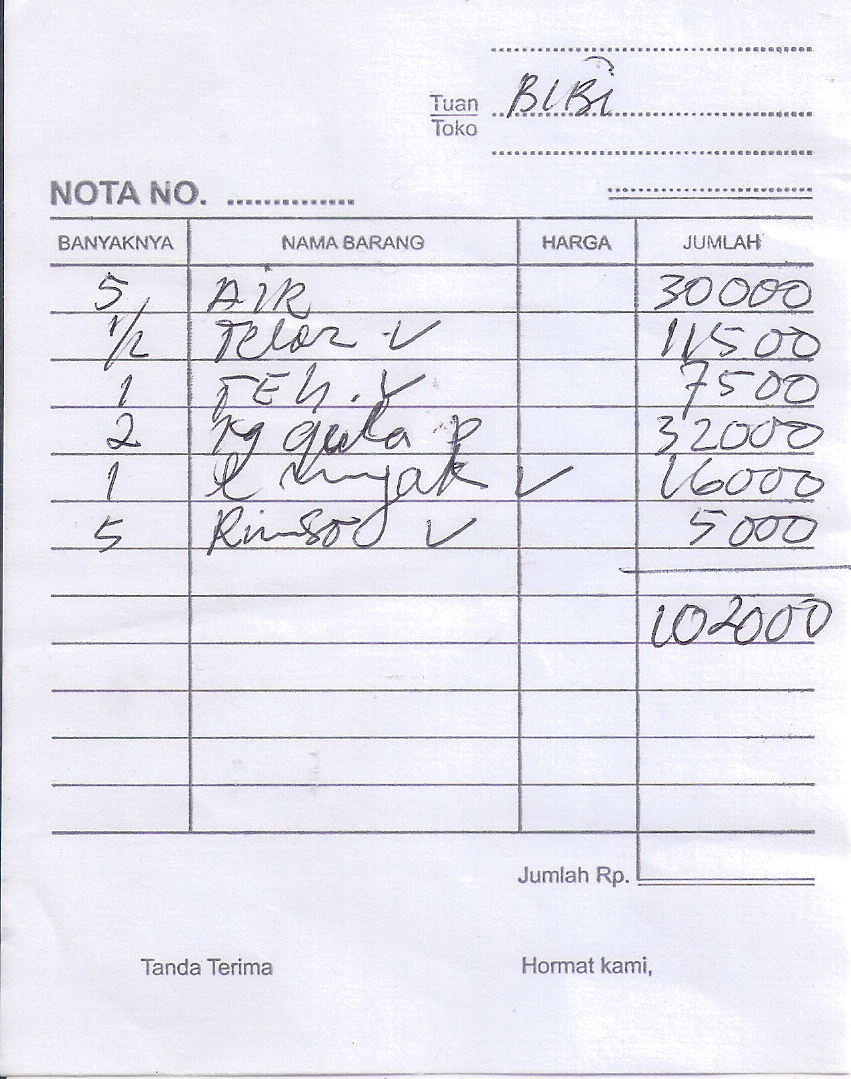 Tuan BIBi
Toko
NOTA NO.
BANYAKNYA NAMA BARANG HARGA JUMLAH
5 AiR 30000
1/2 Telor 11500
1 TEh. 7500
2 kg gula p 32000
1 l minyak 16000
5 Rinso 5000
102000
Jumlah Rp.
Tanda Terima Hormat kami,